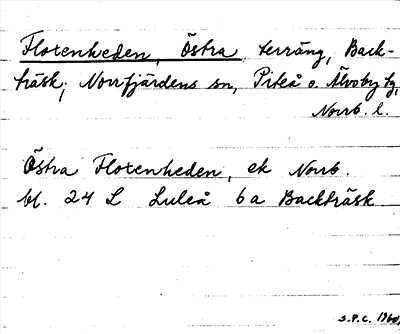 Flotenheden, Östra, terräng, Back-
träsk; Norrfjärdens sn, Piteå o. Älvsby tg,
Norrb. l.
Östra Flotenheden, ek Norrb.
bl. 24 L Luleå 6a Backträsk
S.P.C.